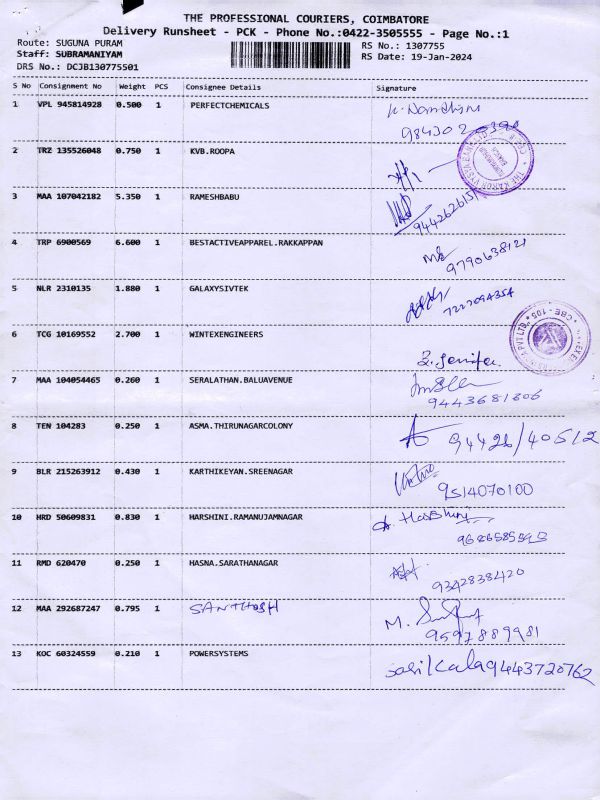 THE PROFESSIONAL COURIERS, COIMBATORE
Delivery Runsheet - PCK - Phone No.:0422-3505555 - Page No.:1
Route: SUGUNA PURAM RS No.: 1307755
Staff: SUBRAMANIYAM RS Date: 19-Jan-2024
DRS No.: DCJB130775501
S No Consignment No Weight PCS Consignee Details Signature
1 VPL 945814928 0.500 1 PERFECTCHEMICALS
2 TRZ 135526048 0.750 1 KVB.ROOPA
3 MAA 107042182 5.350 1 RAMESHBABU
9442626151
4 TRP 6900569 6.600 1 BESTACTIVEAPPAREL.RAKKAPPAN
9790638121
5 NLR 2310135 1.880 1 GALAXYSIVTEK
7227094354
6 TCG 10169552 2.700 1 WINTEXENGINEERS
CBE - 105
J. Jenifer
7 MAA 104054465 0.260 1 SERALATHAN.BALUAVENUE
9443681306
8 TEN 104283 0.250 1 ASMA.THIRUNAGARCOLONY
94426/40512
9 BLR 215263912 0.430 1 KARTHIKEYAN.SREENAGAR
9514070100
10 HRD 50609831 0.830 1 HARSHINI.RAMANUJAMNAGAR
11 RMD 620470 0.250 1 HASNA.SARATHANAGAR
9342838420
12 MAA 292687247 0.795 1 SANTHOSH
9597889981
13 KOC 60324559 0.210 1 POWERSYSTEMS
sasikala 9443720762